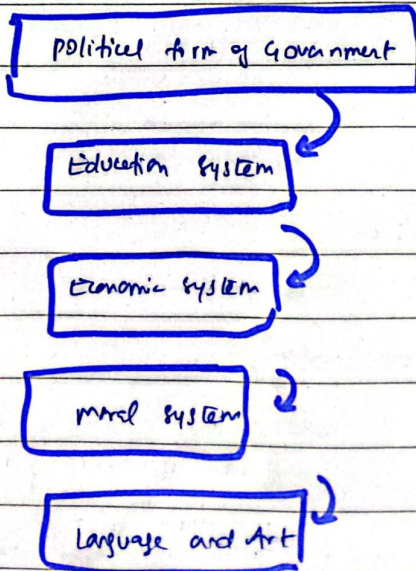 Political form of Government
Education System
Economic System
Moral System
Language and Art